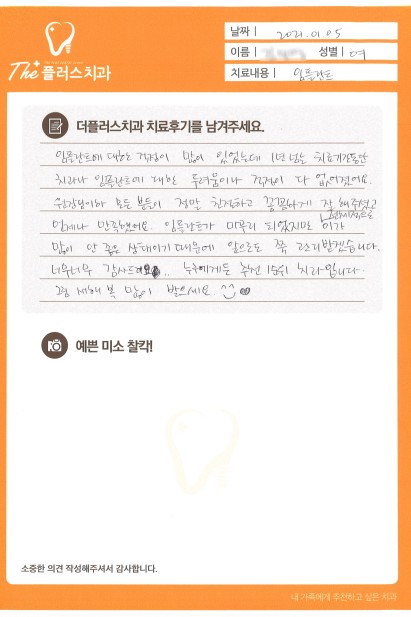 The 플러스치과
날짜 | 2021. 01. 05
이름 | 성별 | 여
치료내용 | 임플란트
더플러스치과 치료후기를 남겨주세요.
임플란트에 대한 걱정이 많이 있었는데 1년 넘는 치료기간동안
치과나 임플란트에 대한 두려움이나 걱정이 다 없어졌어요.
원장님이하 모든 분들이 정말 친절하고 꼼꼼하게 잘 해주셨고
전체적으로
언제나 만족했어요. 임플란트가 마무리 되었지만 이가
많이 안 좋은 상태이기 때문에 앞으로도 쭉 관리받겠습니다.
너무너무 감사드려요.. 누구에게든 추천 1순위 치과입니다.
그럼 새해 복 많이 받으세요
예쁜 미소 찰칵!
소중한 의견 작성해주셔서 감사합니다.
내 가족에게 추천하고 싶은 치과